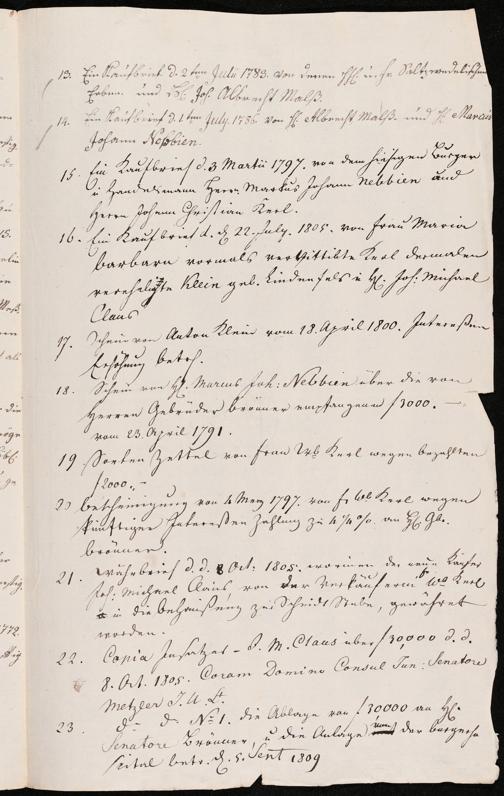 13. Ein Kaufbrief d. 2ten July 1783. von denen
Erben. und Joh. Albrecht Malß.
14. Ein Kaufbrief d. 1ten July 1786 von H. Albrecht Malß. und H. Marcus
Johann Nebbien.
15. Ein Kaufbrief d. 3 Martii 1797. von dem hiesigen Burger
u Handelsmann Herrn Markus Johann Nebbien und
Herrn Johann Christian Kerl.
16. Ein Kaufbrief d. d. 22. July. 1805. von Frau Maria
barbara vormals verwittibte Kerl dermalen
verehligte Klein geb. Lindenfels u H. Joh: Michael
Claus
17. Schein von Anton Klein vom 18. April 1800. Interessen
Erhöhung betref.
18. Schein von H. Marcus Joh: Nebbien über die von
Herren Gebrüder brönner empfangenen f 3000. —
vom 23. April 1791.
19 Sorten Zettel von Frau Wb Kerl wegen bezahlten
f 2000. –
20 bescheinigung von 4 Merz 1797. von Fr Wb Kerl wegen
künftiger Interessen Zahlung zu 4¼ %. an HH. Gb.
brönner.
21. Währbrief d. d. 8 Oct: 1805. worinen der neue Käufer
Joh: Michael Claus, von der Verkäuferin Wb Kerl
in die behausung zur Schmidt Stube, gewähret
worden.
22. Copia Insatzes – J. M. Claus über f 30,000 d. d.
8. Oct. 1805. Coram Domino Consul Jun: Senatore
Metzler J. U. Lt.
23. do do No 1. die Ablage von f 30000 an H.
Senatore Brönner, u die Anlage von der
betr. d. 5. Sept 1809